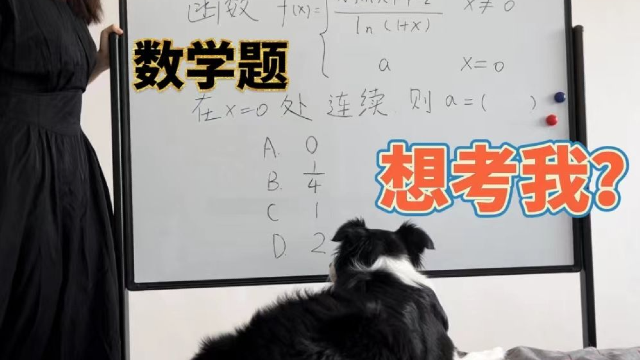 函数 f(x)=
ln(1+x)
x≠0
a x=0
数学题
在 x=0 处 连续, 则 a=( )
A. 0
B. 1/4
C 1
D. 2
想考我?